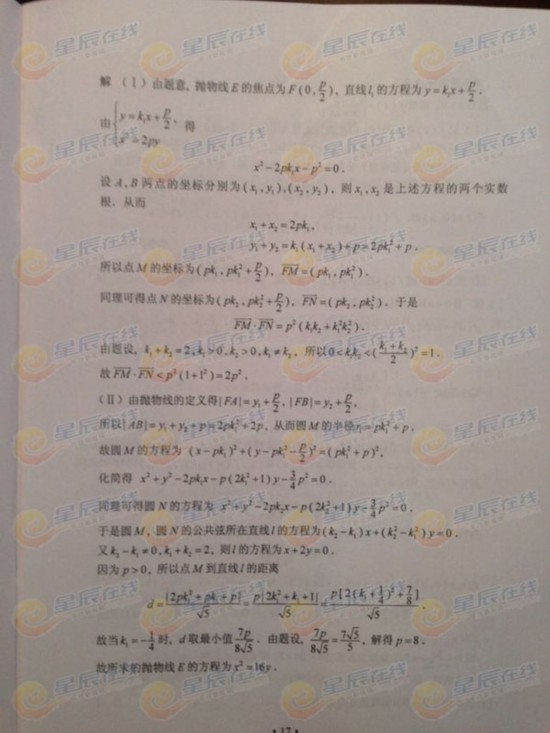 解 (Ⅰ) 由题意, 抛物线 E 的焦点为 F(0, p/2), 直线 l₁ 的方程为 y = k₁x + p/2.
由 { y = k₁x + p/2, x² = 2py 得
x² − 2pk₁x − p² = 0.
设 A, B 两点的坐标分别为 (x₁, y₁), (x₂, y₂), 则 x₁, x₂ 是上述方程的两个实数
根, 从而
x₁ + x₂ = 2pk₁,
y₁ + y₂ = k₁(x₁ + x₂) + p = 2pk₁² + p.
所以点 M 的坐标为 (pk₁, pk₁² + p/2), FM = (pk₁, pk₁²).
同理可得点 N 的坐标为 (pk₂, pk₂² + p/2), FN = (pk₂, pk₂²). 于是
FM · FN = p²(k₁k₂ + k₁²k₂²).
由题设, k₁ + k₂ = 2, k₁ > 0, k₂ > 0, k₁ ≠ k₂, 所以 0 < k₁k₂ < ((k₁ + k₂)/2)² = 1.
故 FM · FN < p²(1 + 1²) = 2p².
(Ⅱ) 由抛物线的定义得 |FA| = y₁ + p/2, |FB| = y₂ + p/2,
所以 |AB| = y₁ + y₂ + p = 2pk₁² + 2p, 从而圆 M 的半径 r₁ = pk₁² + p.
故圆 M 的方程为 (x − pk₁)² + (y − pk₁² − p/2)² = (pk₁² + p)²,
化简得 x² + y² − 2pk₁x − p(2k₁² + 1)y − 3/4 p² = 0.
同理可得圆 N 的方程为 x² + y² − 2pk₂x − p(2k₂² + 1)y − 3/4 p² = 0.
于是圆 M, 圆 N 的公共弦所在直线 l 的方程为 (k₂ − k₁)x + (k₂² − k₁²)y = 0.
又 k₂ − k₁ ≠ 0, k₁ + k₂ = 2, 则 l 的方程为 x + 2y = 0.
因为 p > 0, 所以点 M 到直线 l 的距离
d = |2pk₁² + pk₁ + p|/√5 = p|2k₁² + k₁ + 1|/√5 = p[2(k₁ + 1/4)² + 7/8]/√5.
故当 k₁ = −1/4 时, d 取最小值 7p/8√5. 由题设, 7p/8√5 = 7√5/5, 解得 p = 8.
故所求的抛物线 E 的方程为 x² = 16y.
· 17 ·
星辰在线